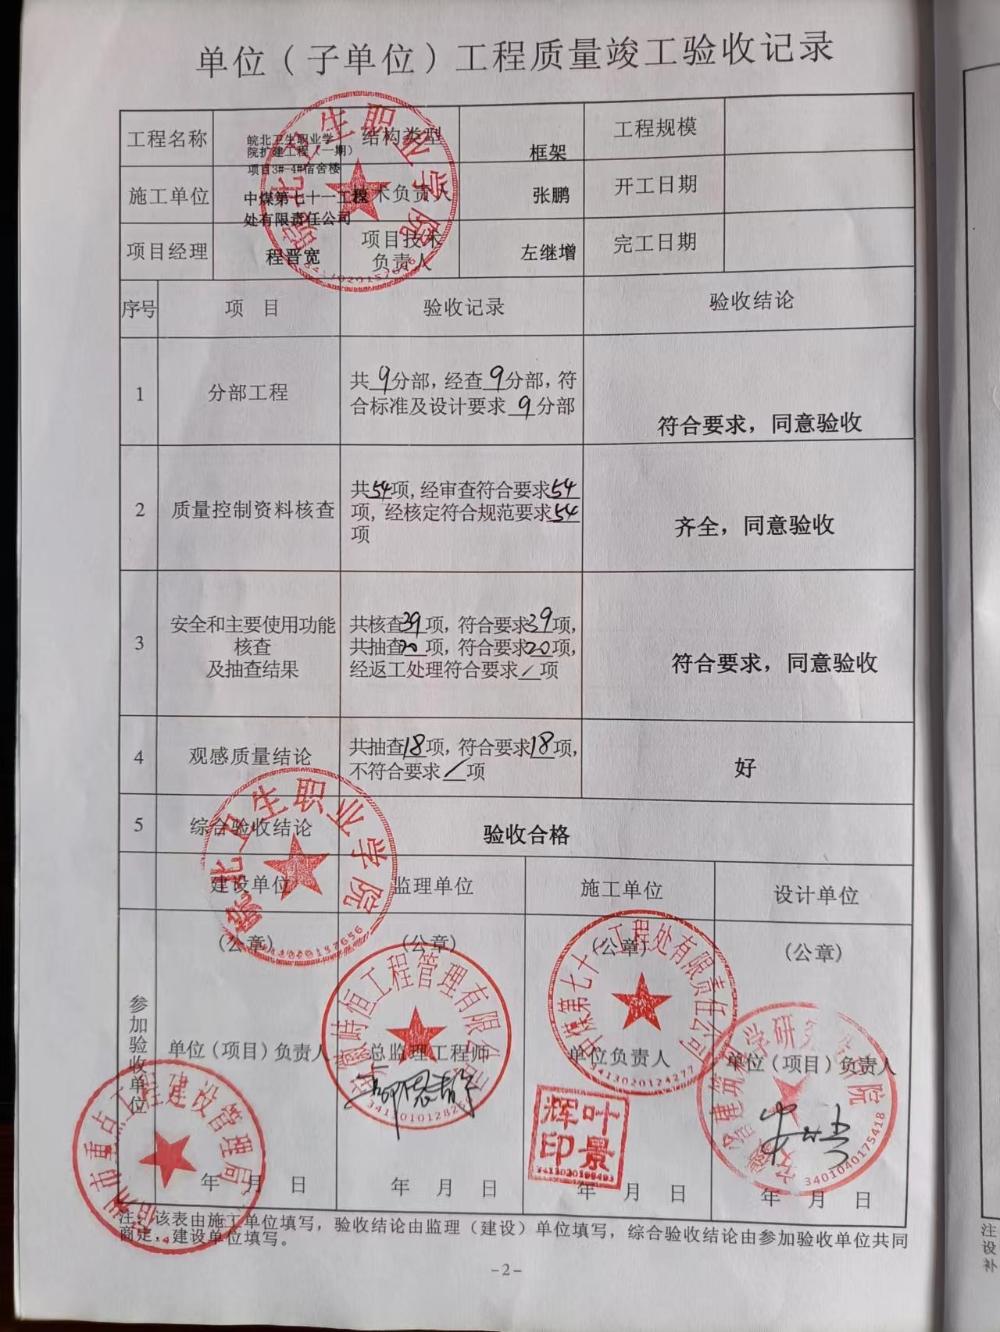 单位（子单位）工程质量竣工验收记录
工程名称
皖北卫生职业学
院扩建工程（一期）
项目3#-4#宿舍楼
结构类型
框架
工程规模
施工单位
中煤第七十一工程
处有限责任公司
技术负责人
张鹏
开工日期
项目经理
程晋宽
项目技术
负责人
左继增
完工日期
序号
项 目
验收记录
验收结论
1
分部工程
共9分部，经查9分部，符
合标准及设计要求 9分部
符合要求，同意验收
2
质量控制资料核查
共54项，经审查符合要求54
项，经核定符合规范要求54
项
齐全，同意验收
3
安全和主要使用功能
核查
及抽查结果
共核查39项，符合要求39项，
共抽查20项，符合要求20项，
经返工处理符合要求/项
符合要求，同意验收
4
观感质量结论
共抽查18项，符合要求18项，
不符合要求/项
好
5
综合验收结论
验收合格
参加验收单位
建设单位
监理单位
施工单位
设计单位
（公章）
（公章）
（公章）
（公章）
单位（项目）负责人
总监理工程师
单位负责人
单位（项目）负责人
年 月 日
年 月 日
年 月 日
年 月 日
注：该表由施工单位填写，验收结论由监理（建设）单位填写，综合验收结论由参加验收单位共同
商定，建设单位填写。
-2-
皖北卫生职业学院
皖北卫生职业学院
工程管理有限公司
中煤第七十一工程处有限责任公司
3413020124277
叶景辉印
3401040175418
宿州市重点工程建设管理局
注
设
补